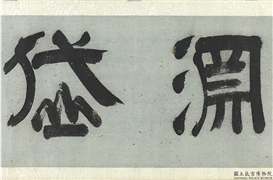 淵岱
國立故宮博物院
NATIONAL PALACE MUSEUM